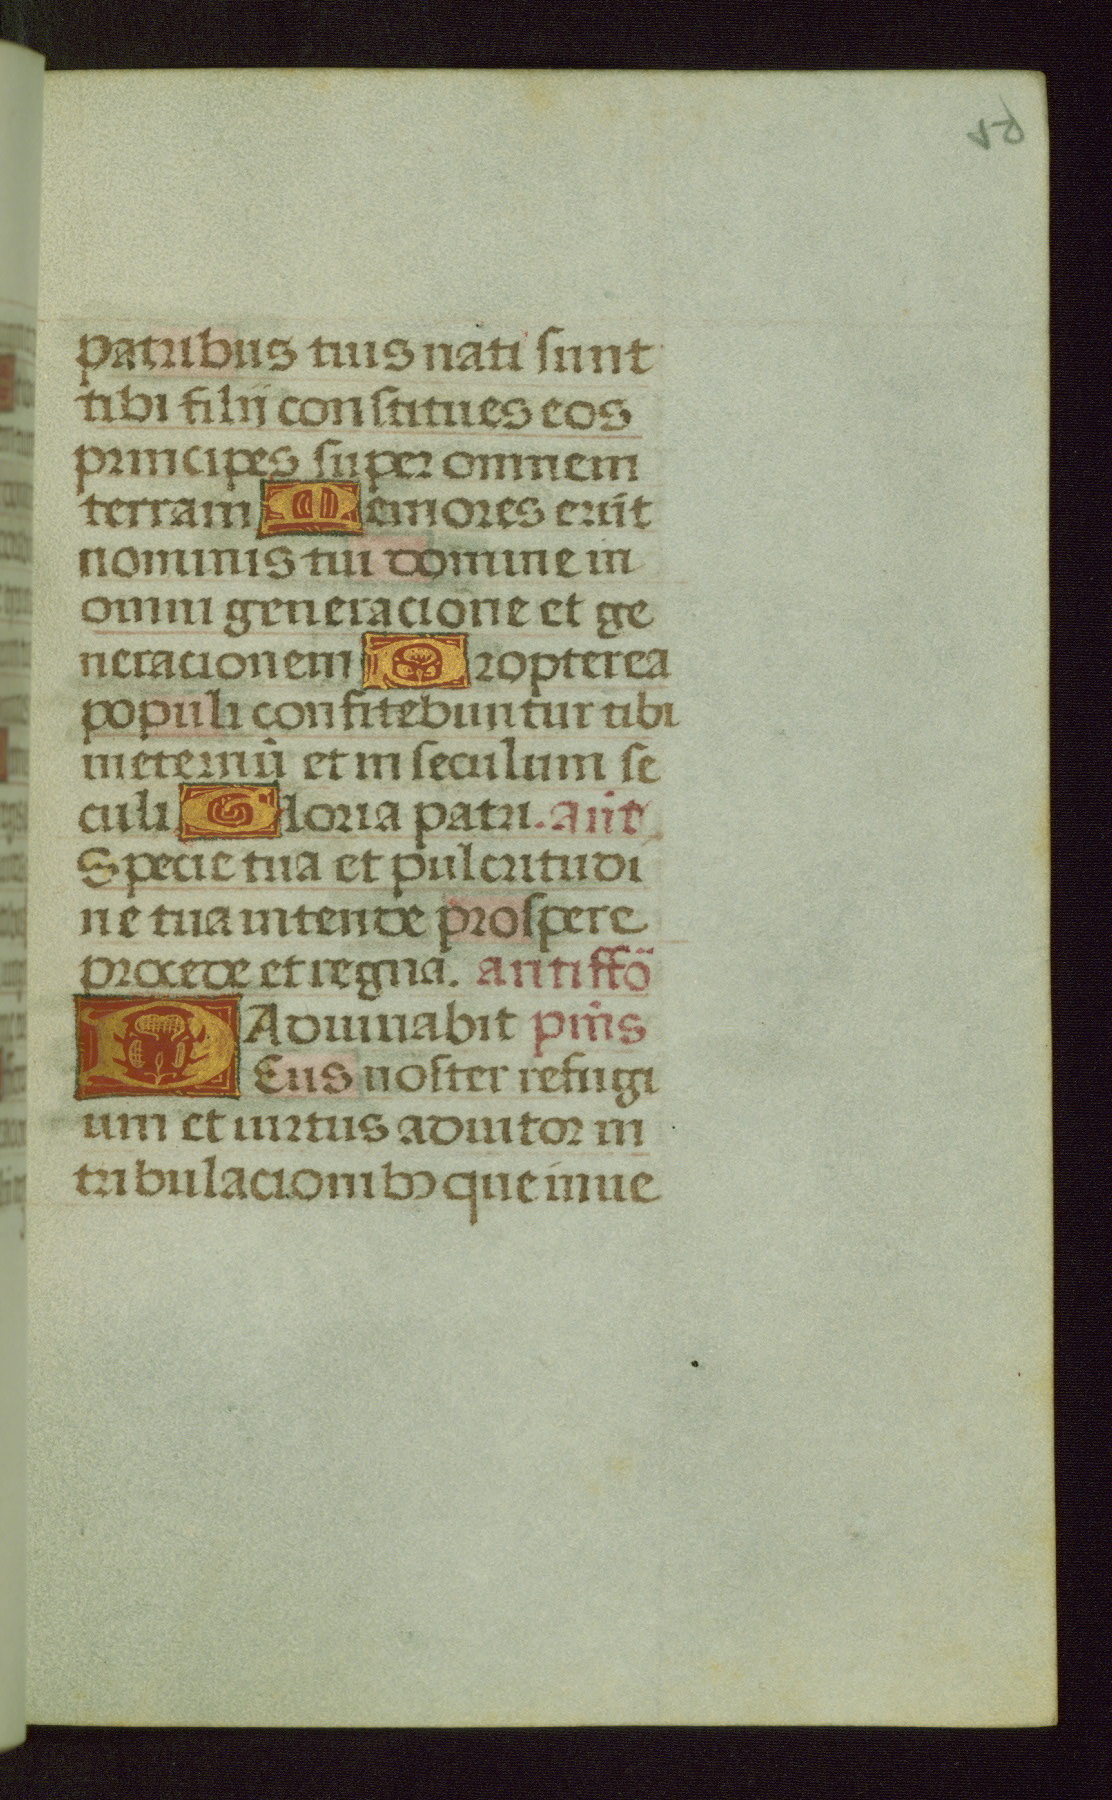 patribus tuis nati sunt
tibi filij constitues eos
principes super omnem
terram Memores erūt
nominis tui domine in
omni generacione et ge
neracionem Propterea
populi confitebuntur tibi
ineternū et in seculum se
culi Gloria patri. añt
Specie tua et pulcritudi
ne tua intende prospere
procede et regna. antiffō
Adiuuabit pm̄s
Deus noster refugi
um et uirtus adiutor in
tribulacionibꝯ que inue